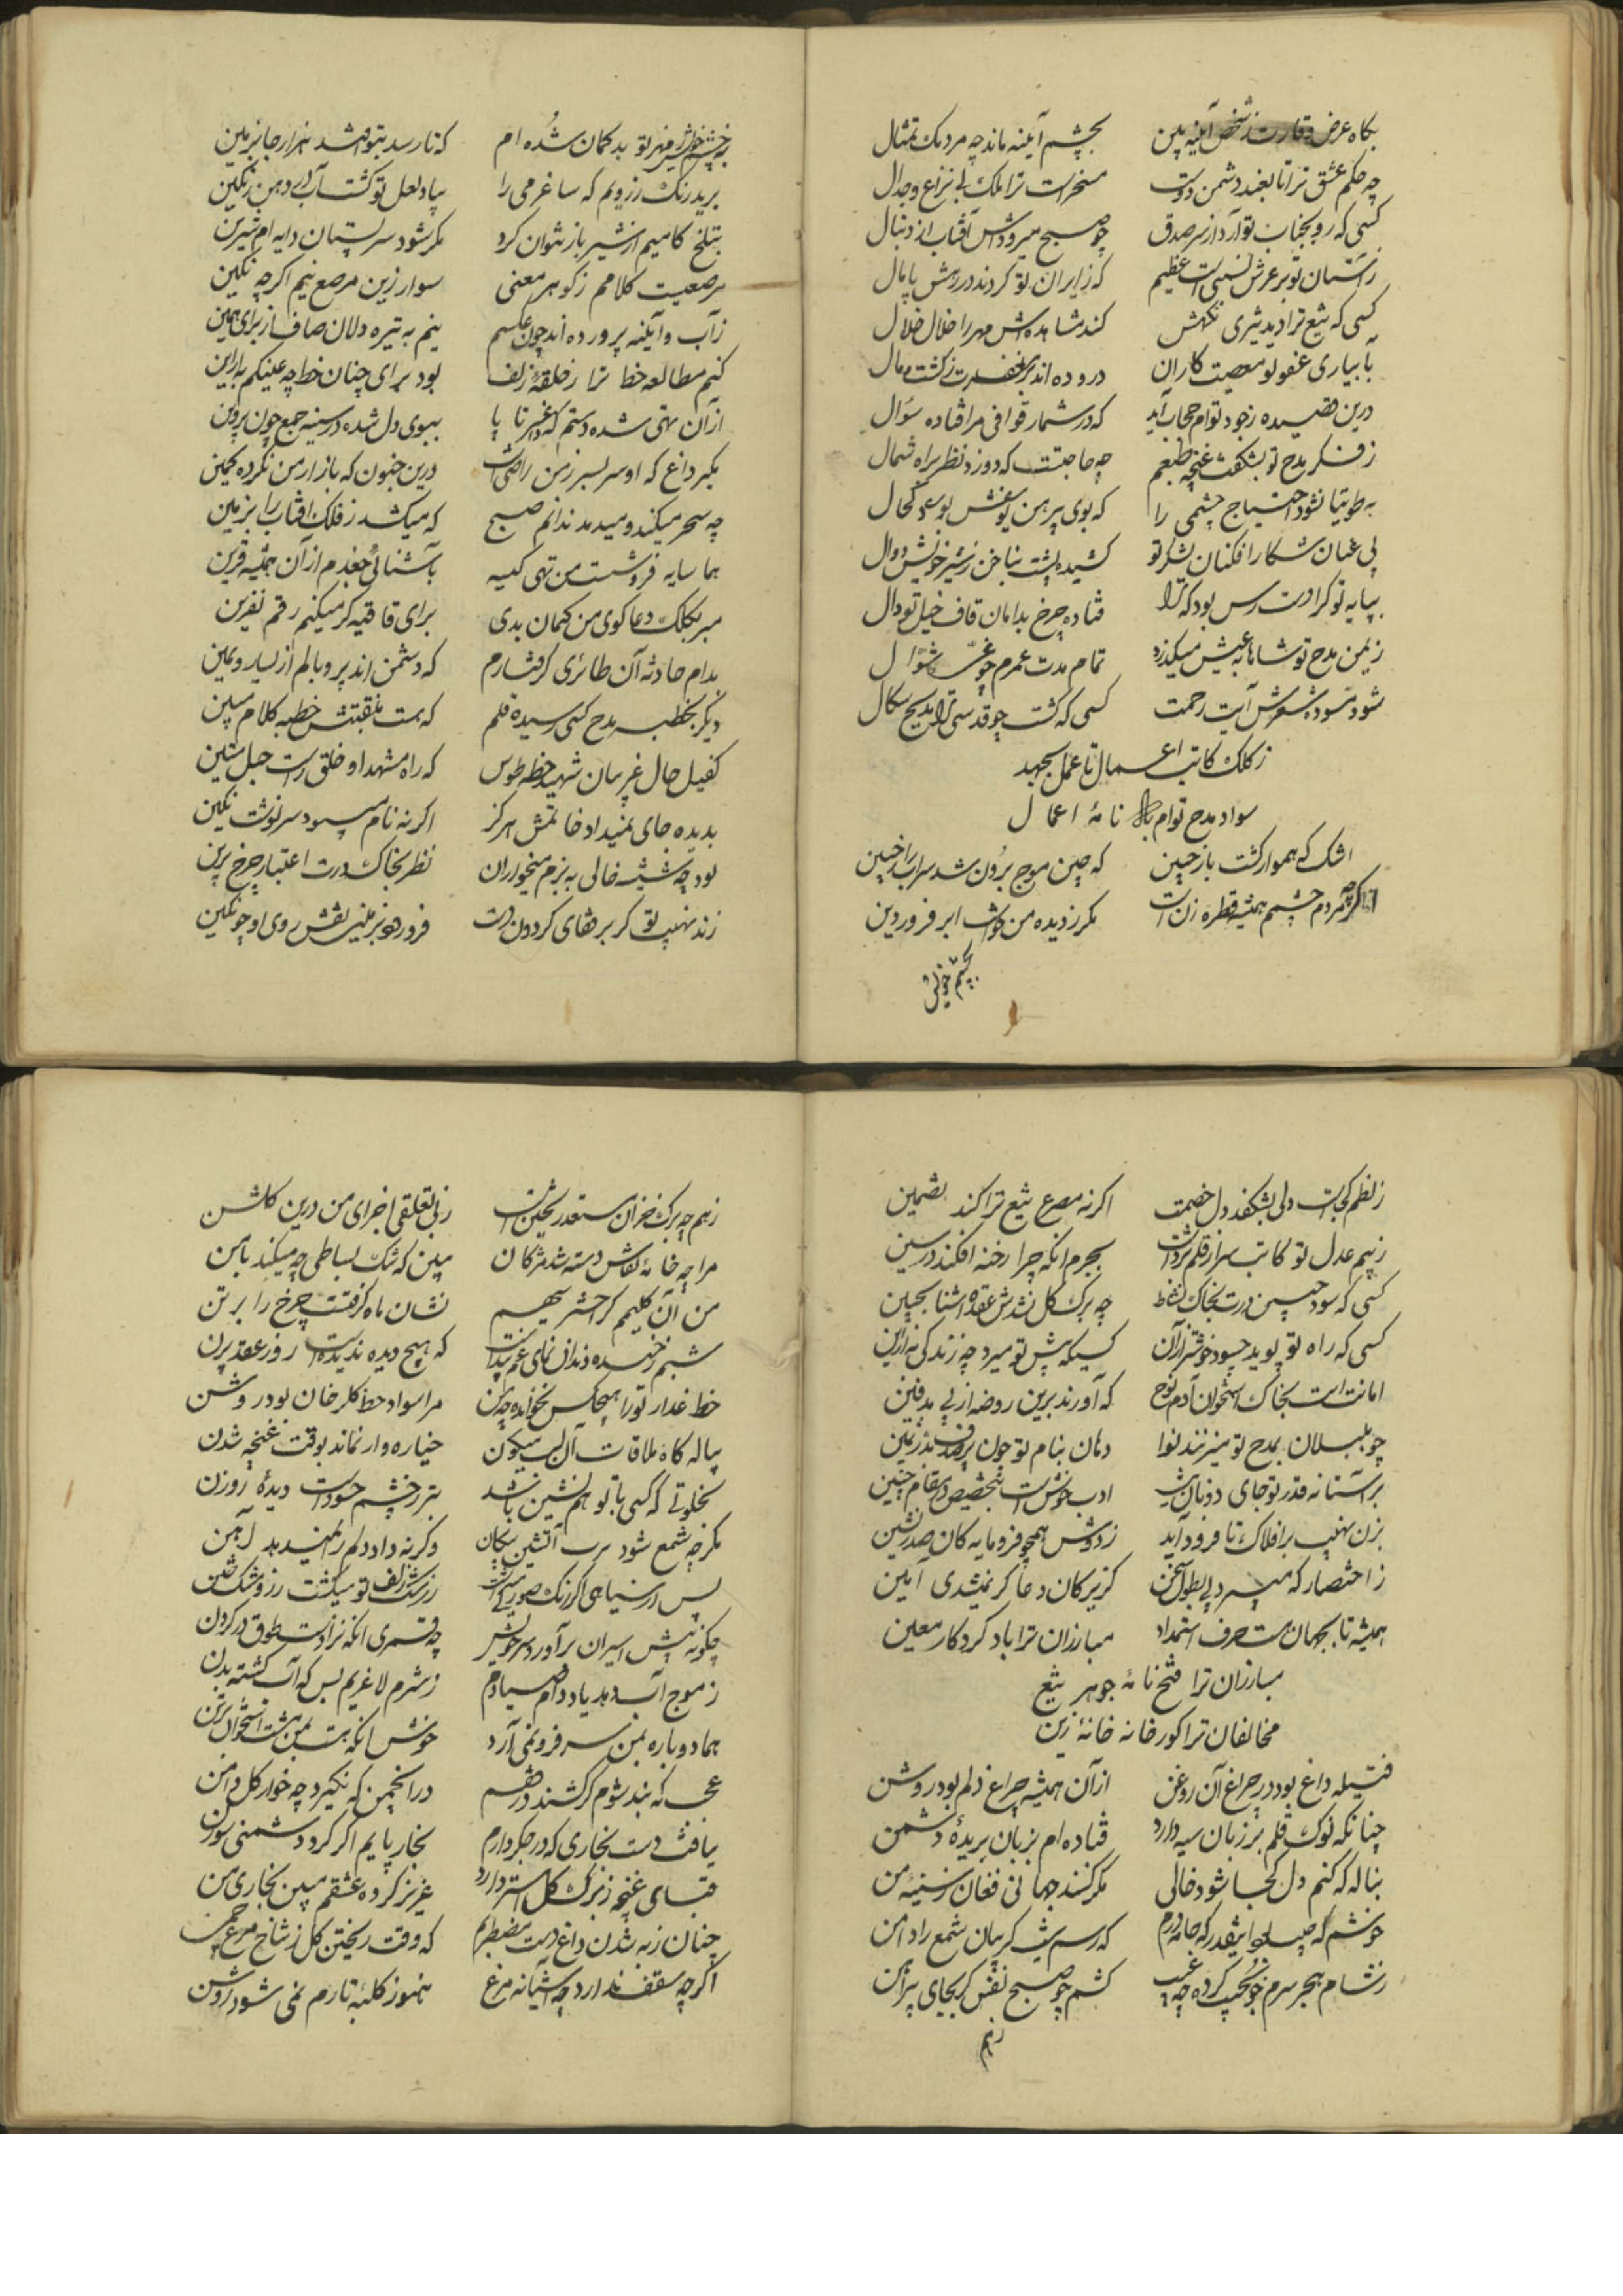 بکاه عرض وقارت ز شخص آینه بین بچشم آینه ماند چه مردمک تمثال
چه حکم عشق ترا تا بعبد دشمن و دوست مسخرست ترا ملک بی نزاع و جدال
کسی که رو بجناب تو آرد از سر صدق چو صبح میرودش آفتاب از دنبال
ز آستان تو بر عرش نسبتی است عظیم که زایران تو کردند در رهش پامال
کسی که تیغ ترا دید کند مشاهده اش مهر را خلال خلال
بآبیاری عفو تو معصیت کاران دروده اند بر مغفرت ز کشت و بال
درین قصیده ز جود توام حجاب آید که در شمار قوافی مرا فتاده سؤال
ز فکر مدح تو بشکفت غنچه طبعم چه حاجتست که دوزد نظر براه شمال
به طوطیا نشود احتیاج چشمی را که بوی پیرهن یوسفش بود کحال
پی عنان شکار افکنان لشکر تو کشیده پشت بناخن ز شیر خویش دوال
بپایه تو کرا دست رس بود که ترا فتاده چرخ بدامان قاف خیل تو دال
ز یمن مدح تو شاها به عیش میکذرد تمام مدت عمرم چو غره شوال
شود مسوده شعرش آیت رحمت کسی که گشت چو قدسی ترا مدیح سکال
ز کلک کاتب اعمال تا عمل بجهد
سواد مدح توام باد نامهٔ اعمال
اشک که هموار کشت باز چین که چین موج برون شد سراب را ز جبین
اکرچه مردم چشمم همیشه قطره زن است مکر ز دیده من خواست ابر فروردین
بچشم خویش
بچشم خویش ز مهر تو بد کمان شده ام که تا رسد بتو افشد هزار جا بزمین
برید رنگ ز رویم که ساغر می را بیاد لعل تو کشت آب در دهن رنگین
بتلخ کامیم از شیر باز نتوان کرد مکر شود سر پستان دایه ام شیرین
مرصعیست کلامم ز کوهر معنی سوار زین مرصع نیم اکرچه نکین
ز آب و آینه پرورده اند چون عکسم نیم به تیره دلان صاف از برای همین
کنم مطالعه خط ترا ز حلقهٔ زلف بود برای چنان خط چه عینکم به ازین
از آن تهی شده دستم که داغ سر تا پا ببوی دل شده در سینه جمع چون پروین
بگیر داغ که او سر بسر ز من راضیست درین جنون که بازار من نکرده کمین
چه سحر میکند و میدمد ندانم صبح که میکشد ز فلک آفتاب را بزمین
هما سایه فروشست من تهی کیسه بآشنائی جغدم از آن همیشه قرین
مبر بکلک دعا کوی من کمان بدی برای قافیه کر میکنم رقم نفرین
بدام حادثه آن طائری کرفتارم که دشمن اند پر و بالم از یسار و یمین
دیکر بخطبه مدح کسی رسیده قلم که هست منقبتش خطبه کلام مبین
کفیل حال غریبان شهید خطهٔ طوس که راه مشهد او خلق راست حبل متین
بدیده جای نمیداد خاتمش هرکز اکر نه نام سرنوشت نکین
بود چه شیشه خالی به بزم میخواران نظر بخاک درت اعتبار چرخ برین
زند نهیب تو کر بر قفای کردون دست فرو رود بزمین نقش روی او چو نکین
ز نظم کجاست دلی بشکفد دل خصمت اکر نه مصرع تیغ ترا کند تضمین
ز بیم عدل تو کاتب سر از قلم برداشت بجرم انکه چرا رخنه افکند در سین
کسی که سود جبین درت بخاک نشاط چه برک کل نشدش عقده آشنا بجبین
کسی که راه تو پوید چه سود خوشتر از آن کسیکه پیش تو میرد چه زندکی به ازین
امانت است بخاک استخوان آدم و نوح که آورند برین روضه از پی تدفین
چو بلبلان بمدح تو میزنند نوا دهان بنام تو چون پر کنند بذر ثمین
بر آستانه قدر تو جای دونان نیست ادب خوش است بتخصیص در مقام چنین
بزن نهیب بر افلاک تا فرود آید ز دوش همچو فرومایه کان صدر نشین
ز اختصار که میبرد پی بطول سخن کزیر کان دعا کر نمیشدی آمین
همیشه تا بجهان هست حرف استمداد مبارزان ترا باد کردکار معین
مبارزان ترا فتح نامهٔ جوهر تیغ
مخالفان ترا کور خانه خانهٔ زین
فتیله داغ بود در چراغ آن روغن از آن همیشه چراغ دلم بود روشن
چنانکه نوک قلم بر زبان سیه دارد فتاده ام بزبان بریدهٔ دشمن
بناله که کنم دل کجا شود خالی مکر کنند جهانی فغان ز سینهٔ من
خوشم که اینقدر که جامه درم که رسم نیست کریبان شمع را دامن
ز شام هجر سرم چو بجیب کرده چه عجب کشم چو صبح نفس کر بجای پیراهن
زهم
زهم چه برک خزان مستعد ریختن است ز بی تعلقی اجزای من درین کلشن
مرا چه خامهٔ نقاش دسته شد مژکان ببین که تنک بساطی چه میکند با من
من آن کلیم کز اختر سیهم نشان ماه کرفتست چرخ را بر تن
شبم ز خنده دندان نمای غم پیداست که هیچ دیده ندیدست روز عقد پرن
خط عذار تو را هیچکس نخوانده چه من مرا سواد خط کلرخان بود روشن
پیاله کاه ملاقات آن لب میکون خیاره وار نماند بوقت غنچه شدن
بخلوتی که کسی با تو هم نشین باشد بتر ز چشم حسودست دیدهٔ روزن
مکر چه شمع شود سرب آتشین پیکان وکرنه داد دلم را نمیدهد آهن
پس از سیاهی اکر رنک صورتی میداشت ز رشک زلف تو میکشت زرد مشک ختن
چکونه پیش اسیران برآورد سر خویش چه قمری انکه نزادست طوق در کردن
ز موج آب دهد یاد دام صیادم ز شرم لاغریم بس که آب کشته بدن
هما دوباره بمن سر فرو نمی آرد خوش انکه هست بمن مشت استخوان بر تن
عجب که بند شوم کر کشند در قفسم در انجمن که نکیرد چه خوار کل دامن
نیافت دست بخاری که در جکر دارم بخار پایم اکر کرد دشمنی سوزن
قبای غنچه ز برک کل استر دارد عزیز کرده عشقم مبین بخاری من
چنان ز به شدن داغ دست مضطربم که وقت ریختن کل ز شاخ مرغ چمن
اکرچه سقف ندارد چه آشیانه مرغ هنوز کلبهٔ تارم نمی شود روشن